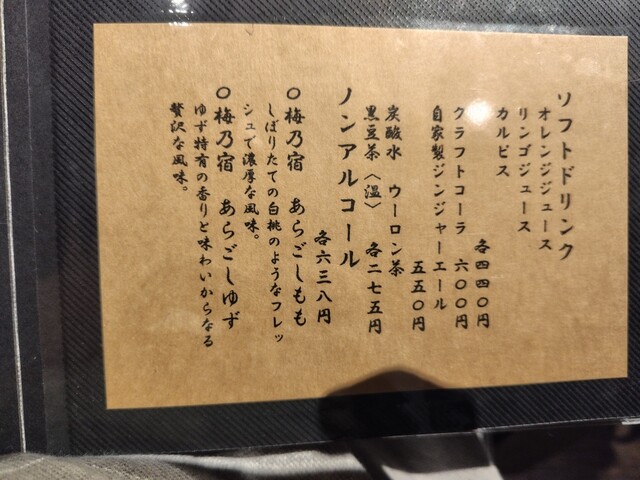 ソフトドリンク
オレンジジュース
リンゴジュース
カルピス
各四四〇円
クラフトコーラ 六〇〇円
自家製ジンジャーエール
五五〇円
炭酸水 ウーロン茶
黒豆茶〈温〉 各二七五円
ノンアルコール
各六三八円
〇梅乃宿 あらごしもも
しぼりたての白桃のようなフレッ
シュで濃厚な風味。
〇梅乃宿 あらごしゆず
ゆず特有の香りと味わいからなる
贅沢な風味。